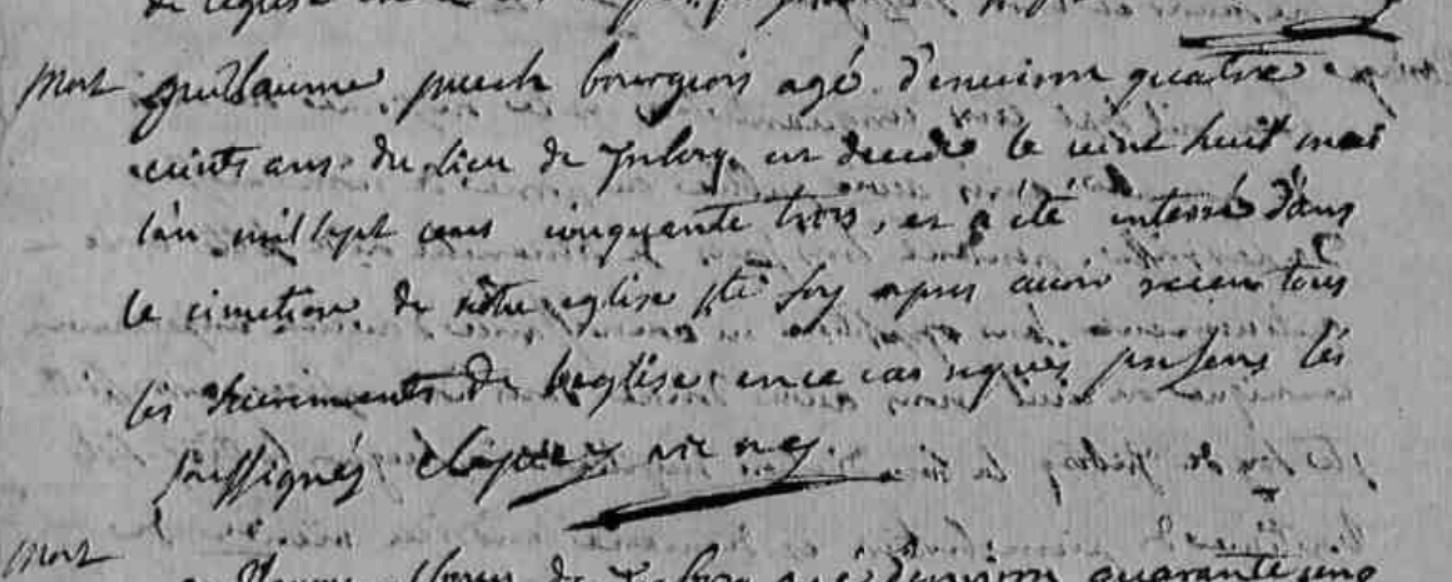 de l'eglise
mort guillaume puech bourgeois agé d'environ quatre
vints ans du lieu de est decedé le vint huit mai
l'an mil sept cens cinquante trois, et a été enterré dans
le cimetiere de nôtre eglise ste foy apres avoir receu tous
les sacremens de l'eglise en ce cas requis presens les
soussignés
mort
de agé d'environ quarante cinq